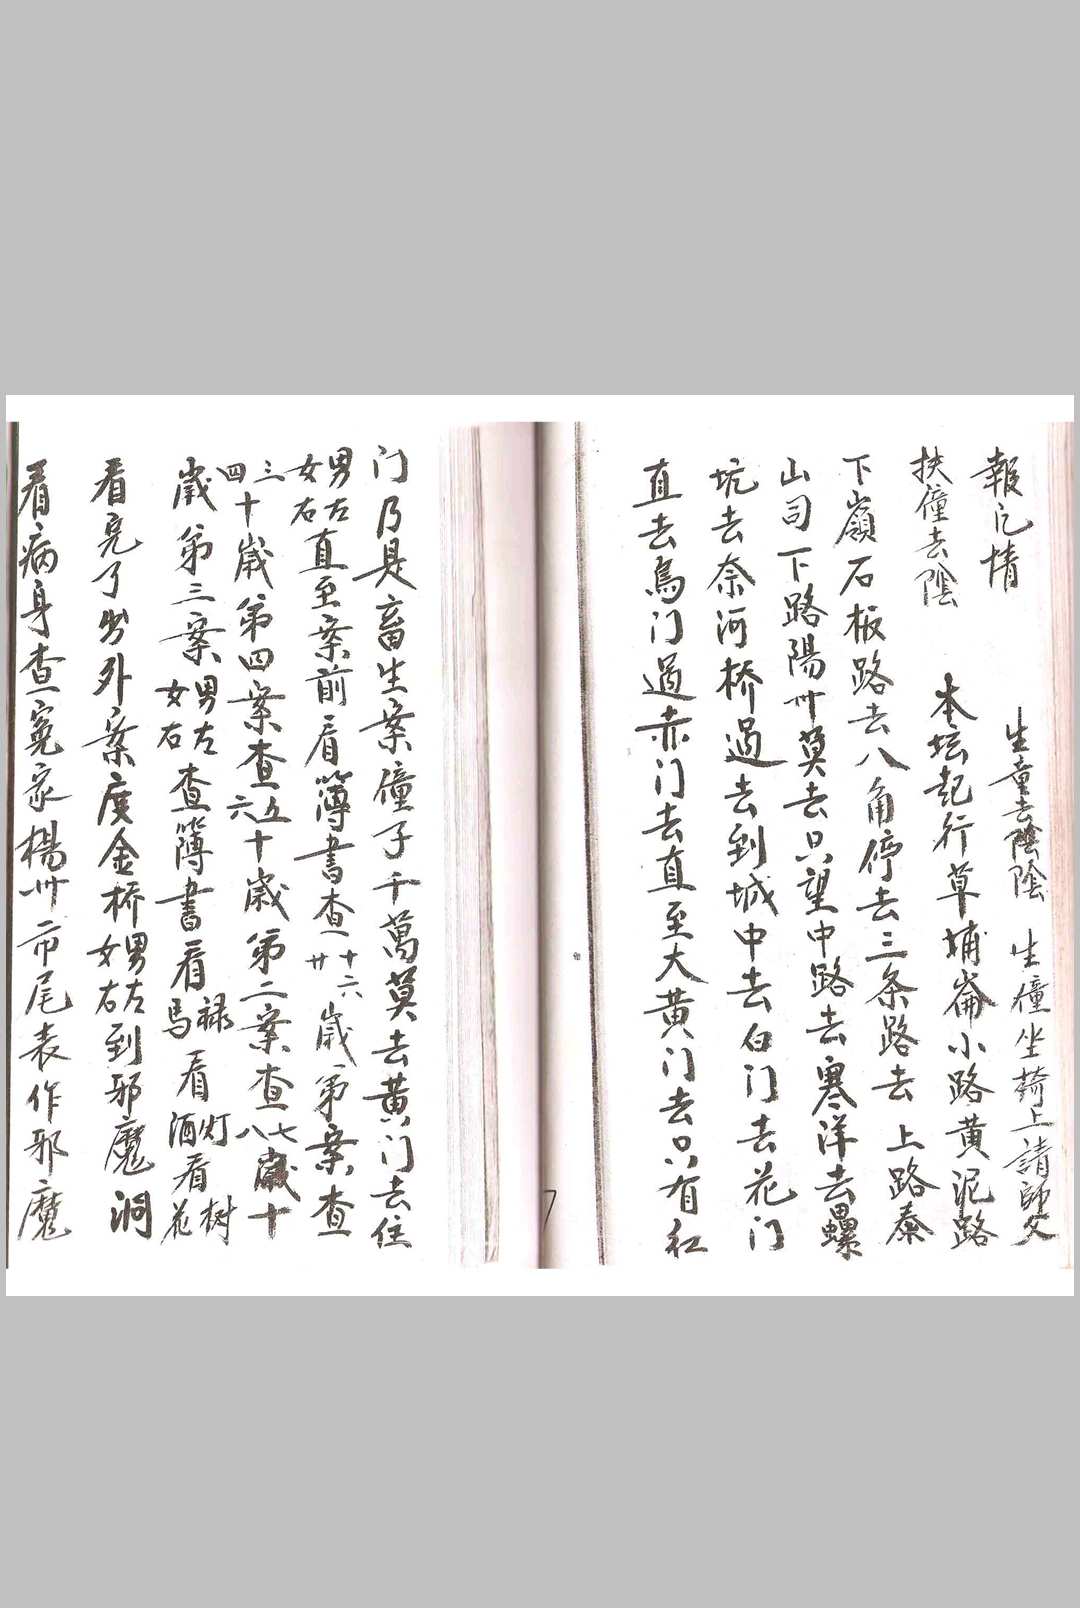 報完情 生童去陰陰 生僮坐䓫上請師父
扶僮去陰 本坛起行草埔崙小路黄泥路
下嶺石板路去八角停去三条路去上路泰
山司下路陽州莫去只望中路去寒洋去螺
坑去奈河桥過去到城中去白门去花门
直去烏门過赤门去直至大黄门去只有红
门乃是畜生案僮子千萬莫去黄门去住
男左女右直至案前看簿書查一十六廿歲第案查
三四十歲第四案查五六十歲第二案查七八歲十
歲第三案男左女右查簿書看禄馬看灯酒看树花
看完了出外案度金桥男左女右到邪魔洞
看病身查冤家楊州市尾表作邪魔